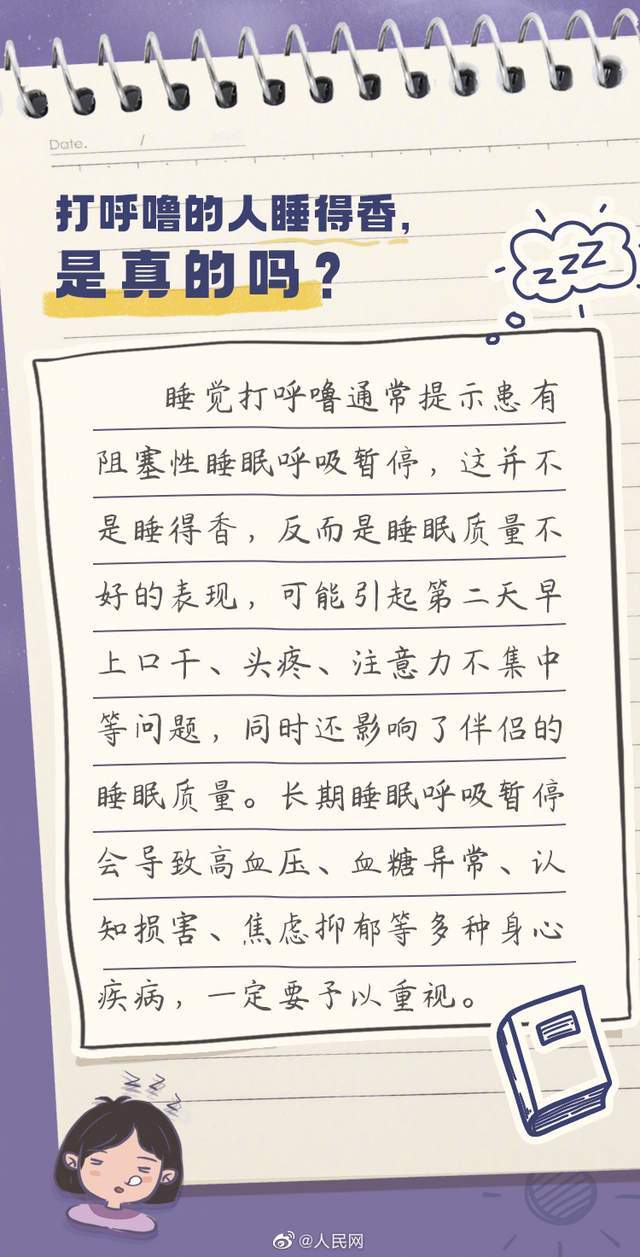 Date. /
打呼噜的人睡得香,
是真的吗?
zzz
睡觉打呼噜通常提示患有
阻塞性睡眠呼吸暂停，这并不
是睡得香，反而是睡眠质量不
好的表现，可能引起第二天早
上口干、头疼、注意力不集中
等问题，同时还影响了伴侣的
睡眠质量。长期睡眠呼吸暂停
会导致高血压、血糖异常、认
知损害、焦虑抑郁等多种身心
疾病，一定要予以重视。
zzz
@人民网